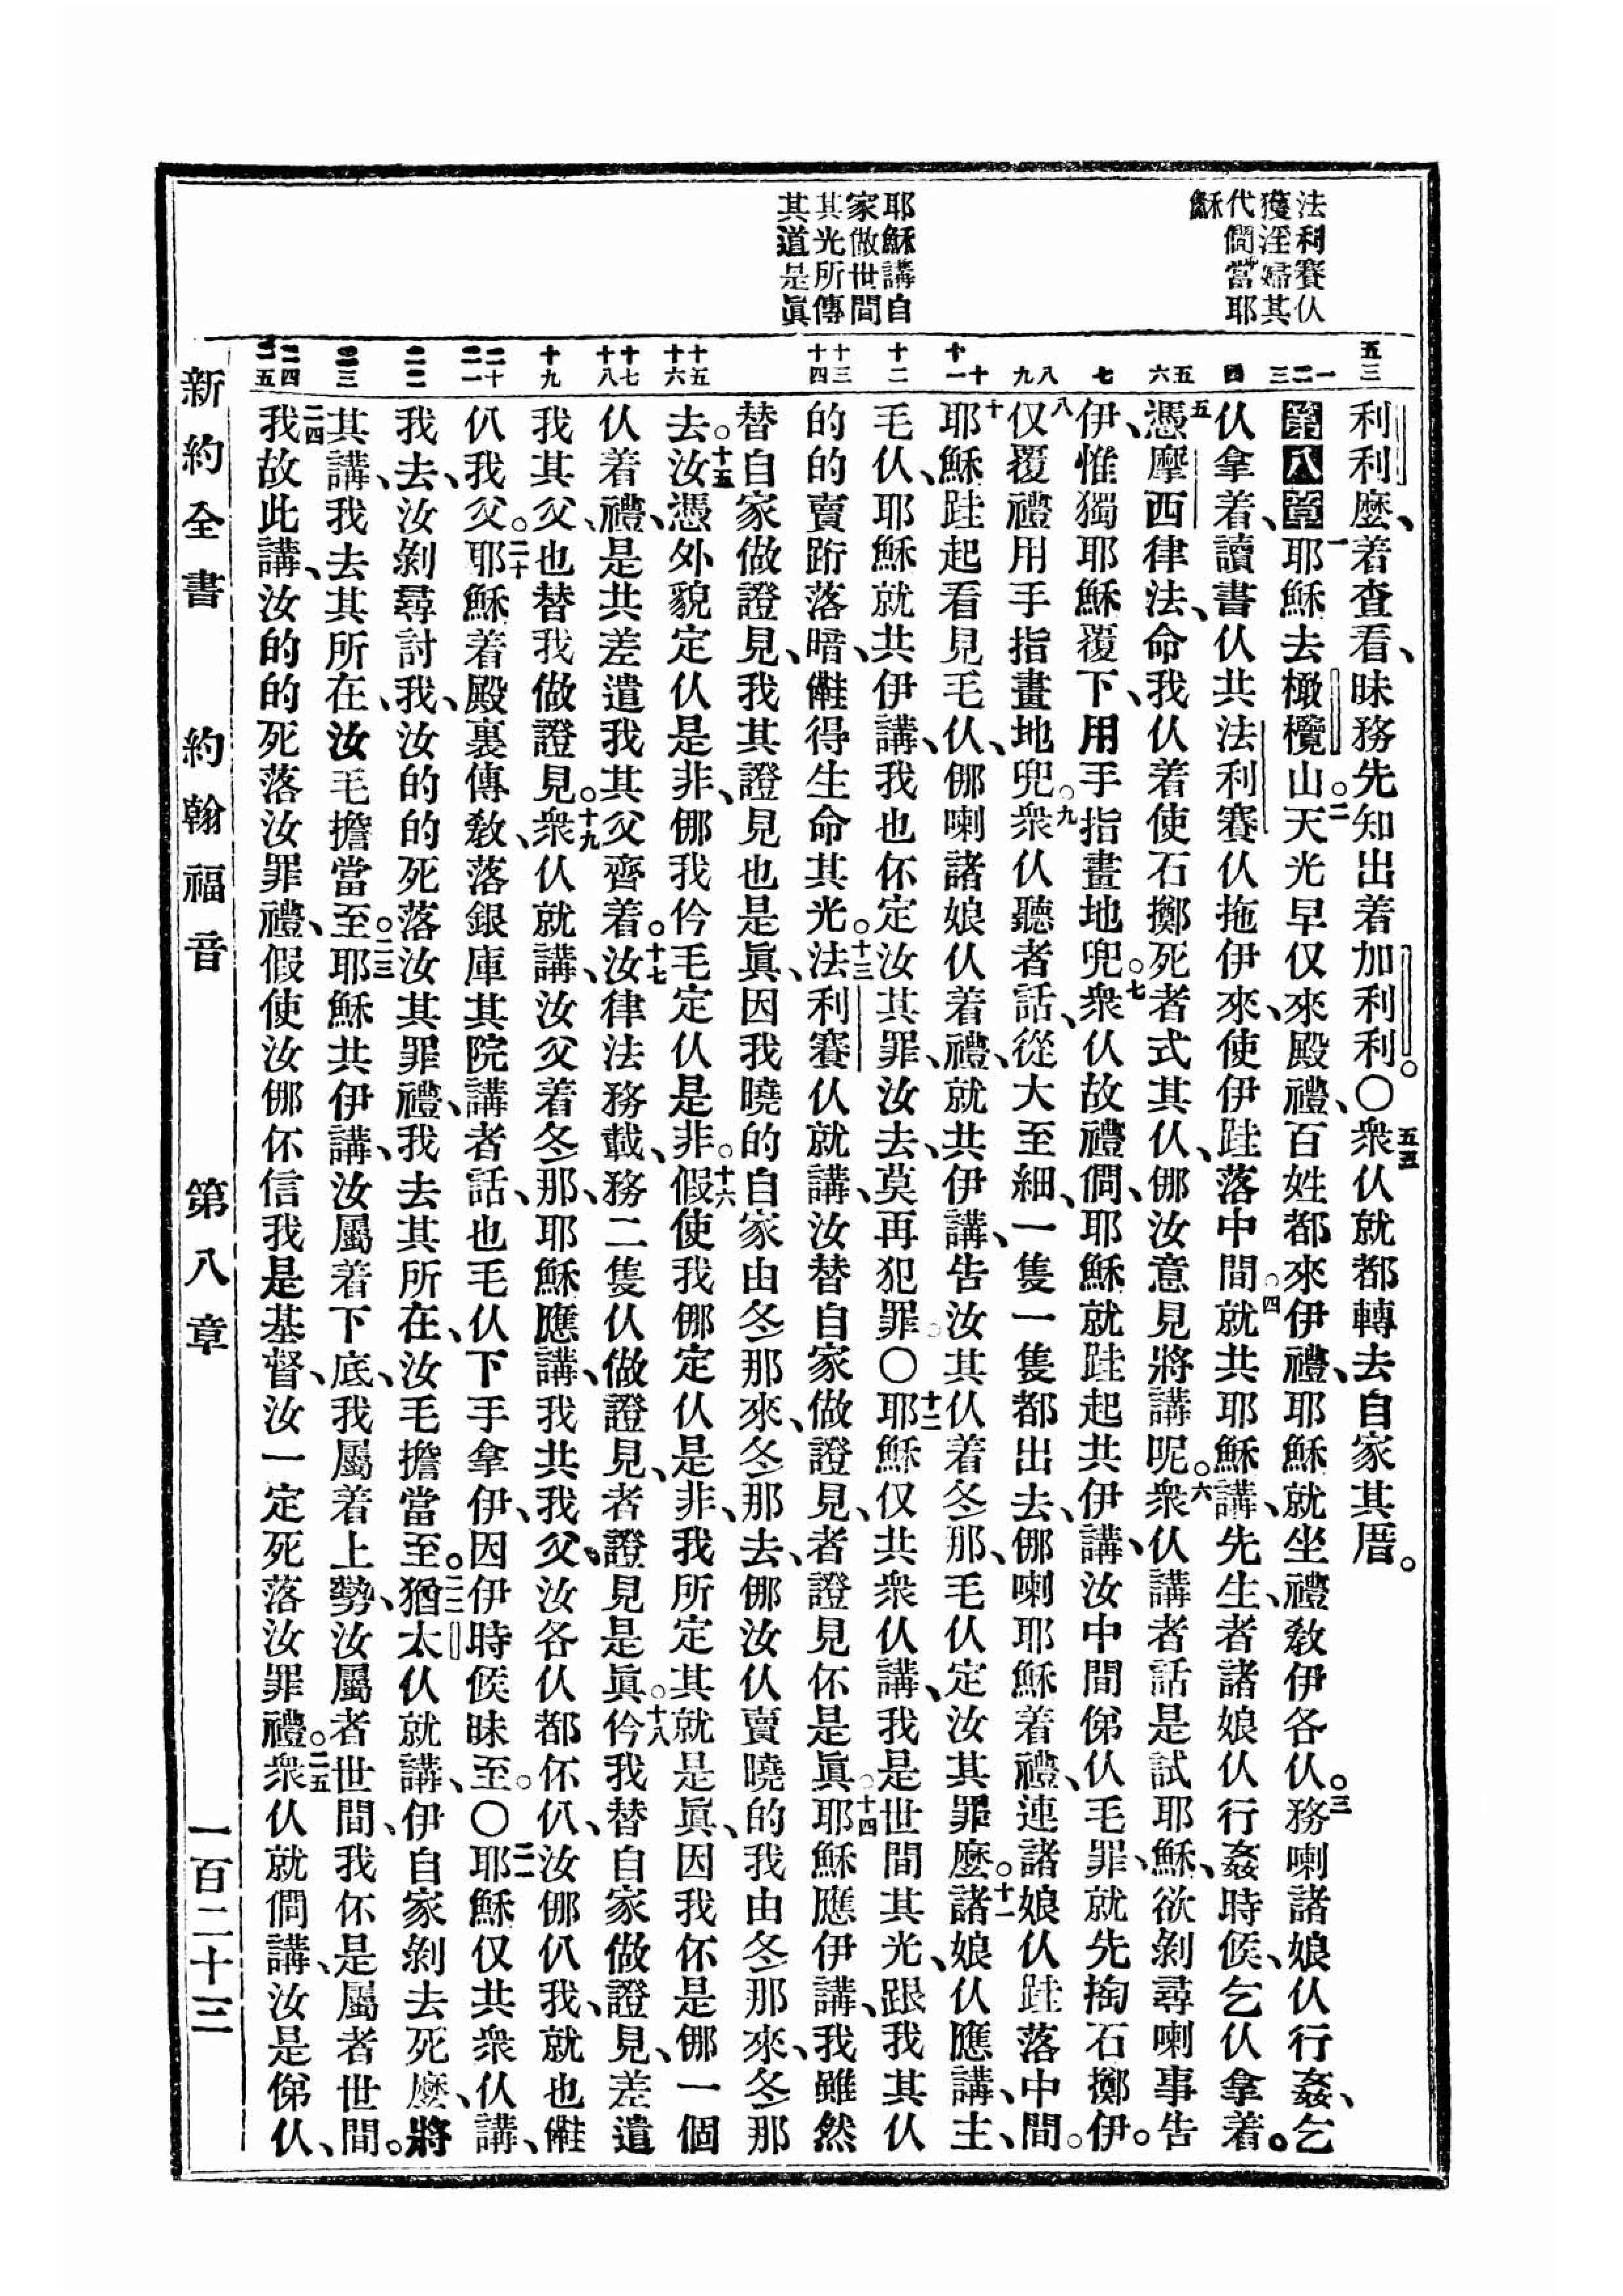 法利賽仈
獲淫婦其
代僩當耶
穌
耶穌講自
家做世間
其光所傳
其道是眞
五三
一二三
四
五六
七
八九
十十一
十二
十三十四
十五十六
十七十八
十九
二十二一
二二
二三
二四二五
利利麽、着查看、昧務先知出着加利利。〇五三衆仈就都轉去自家其厝。
第八章一耶穌去橄欖山。二天光早仅來殿禮、百姓都來伊禮、耶穌就坐禮敎伊各仈。三務喇諸娘仈行姦、乞
仈拿着、讀書仈共法利賽仈拖伊來、使伊跬落中間。四就共耶穌講、先生、者諸娘仈行姦時候、乞仈拿着。
五憑摩西律法、命我仈着使石擲死者式其仈、㑚汝意見將講呢。六衆仈講者話是試耶穌、欲剝尋喇事告
伊、惟獨耶穌覆下、用手指畫地兜。七衆仈故禮僩、耶穌就跬起共伊講、汝中間俤仈毛罪、就先掏石擲伊。
八仅覆禮用手指畫地兜。九衆仈聽者話、從大至細、一隻一隻都出去、㑚喇耶穌着禮、連諸娘仈跬落中間。
十耶穌跬起看見毛仈、㑚喇諸娘仈着禮、就共伊講、告汝其仈着冬那、毛仈定汝其罪麽。十一諸娘仈應講、主、
毛仈、耶穌就共伊講、我也伓定汝其罪、汝去、莫再犯罪。〇十二耶穌仅共衆仈講、我是世間其光、跟我其仈
的的賣跻落暗、㒕得生命其光。十三法利賽仈就講、汝替自家做證見、者證見伓是眞。十四耶穌應伊講、我雖然
替自家做證見、我其證見也是眞、因我曉的自家由冬那來、冬那去、㑚汝仈賣曉的我由冬那來、冬那
去。十五汝憑外貌定仈是非、㑚我仱毛定仈是非。十六假使我㑚定仈是非、我所定其就是眞、因我伓是㑚一個
仈着禮、是共差遣我其父齊着。十七汝律法務載、務二隻仈做證見、者證見是眞。十八仱我替自家做證見、差遣
我其父、也替我做證見。十九衆仈就講、汝父着冬那、耶穌應講、我共我父、汝各仈都伓仈、汝㑚仈我、就也㒕
仈我父。二十耶穌着殿裏傳敎、落銀庫其院講者話、也毛仈下手拿伊、因伊時候昧至。〇二一耶穌仅共衆仈講、
我去、汝剝尋討我、汝的的死落汝其罪禮、我去其所在、汝毛擔當至。二二猶太仈就講、伊自家剝去死麽、將
其講、我去其所在、汝毛擔當至。二三耶穌共伊講、汝屬着下底、我屬着上勢、汝屬者世間、我伓是屬者世間。
二四我故此講、汝的的死落汝罪禮、假使汝㑚伓信我是基督、汝一定死落汝罪禮。二五衆仈就僩講、汝是俤仈、
新約全書　約翰福音　第八章　一百二十三